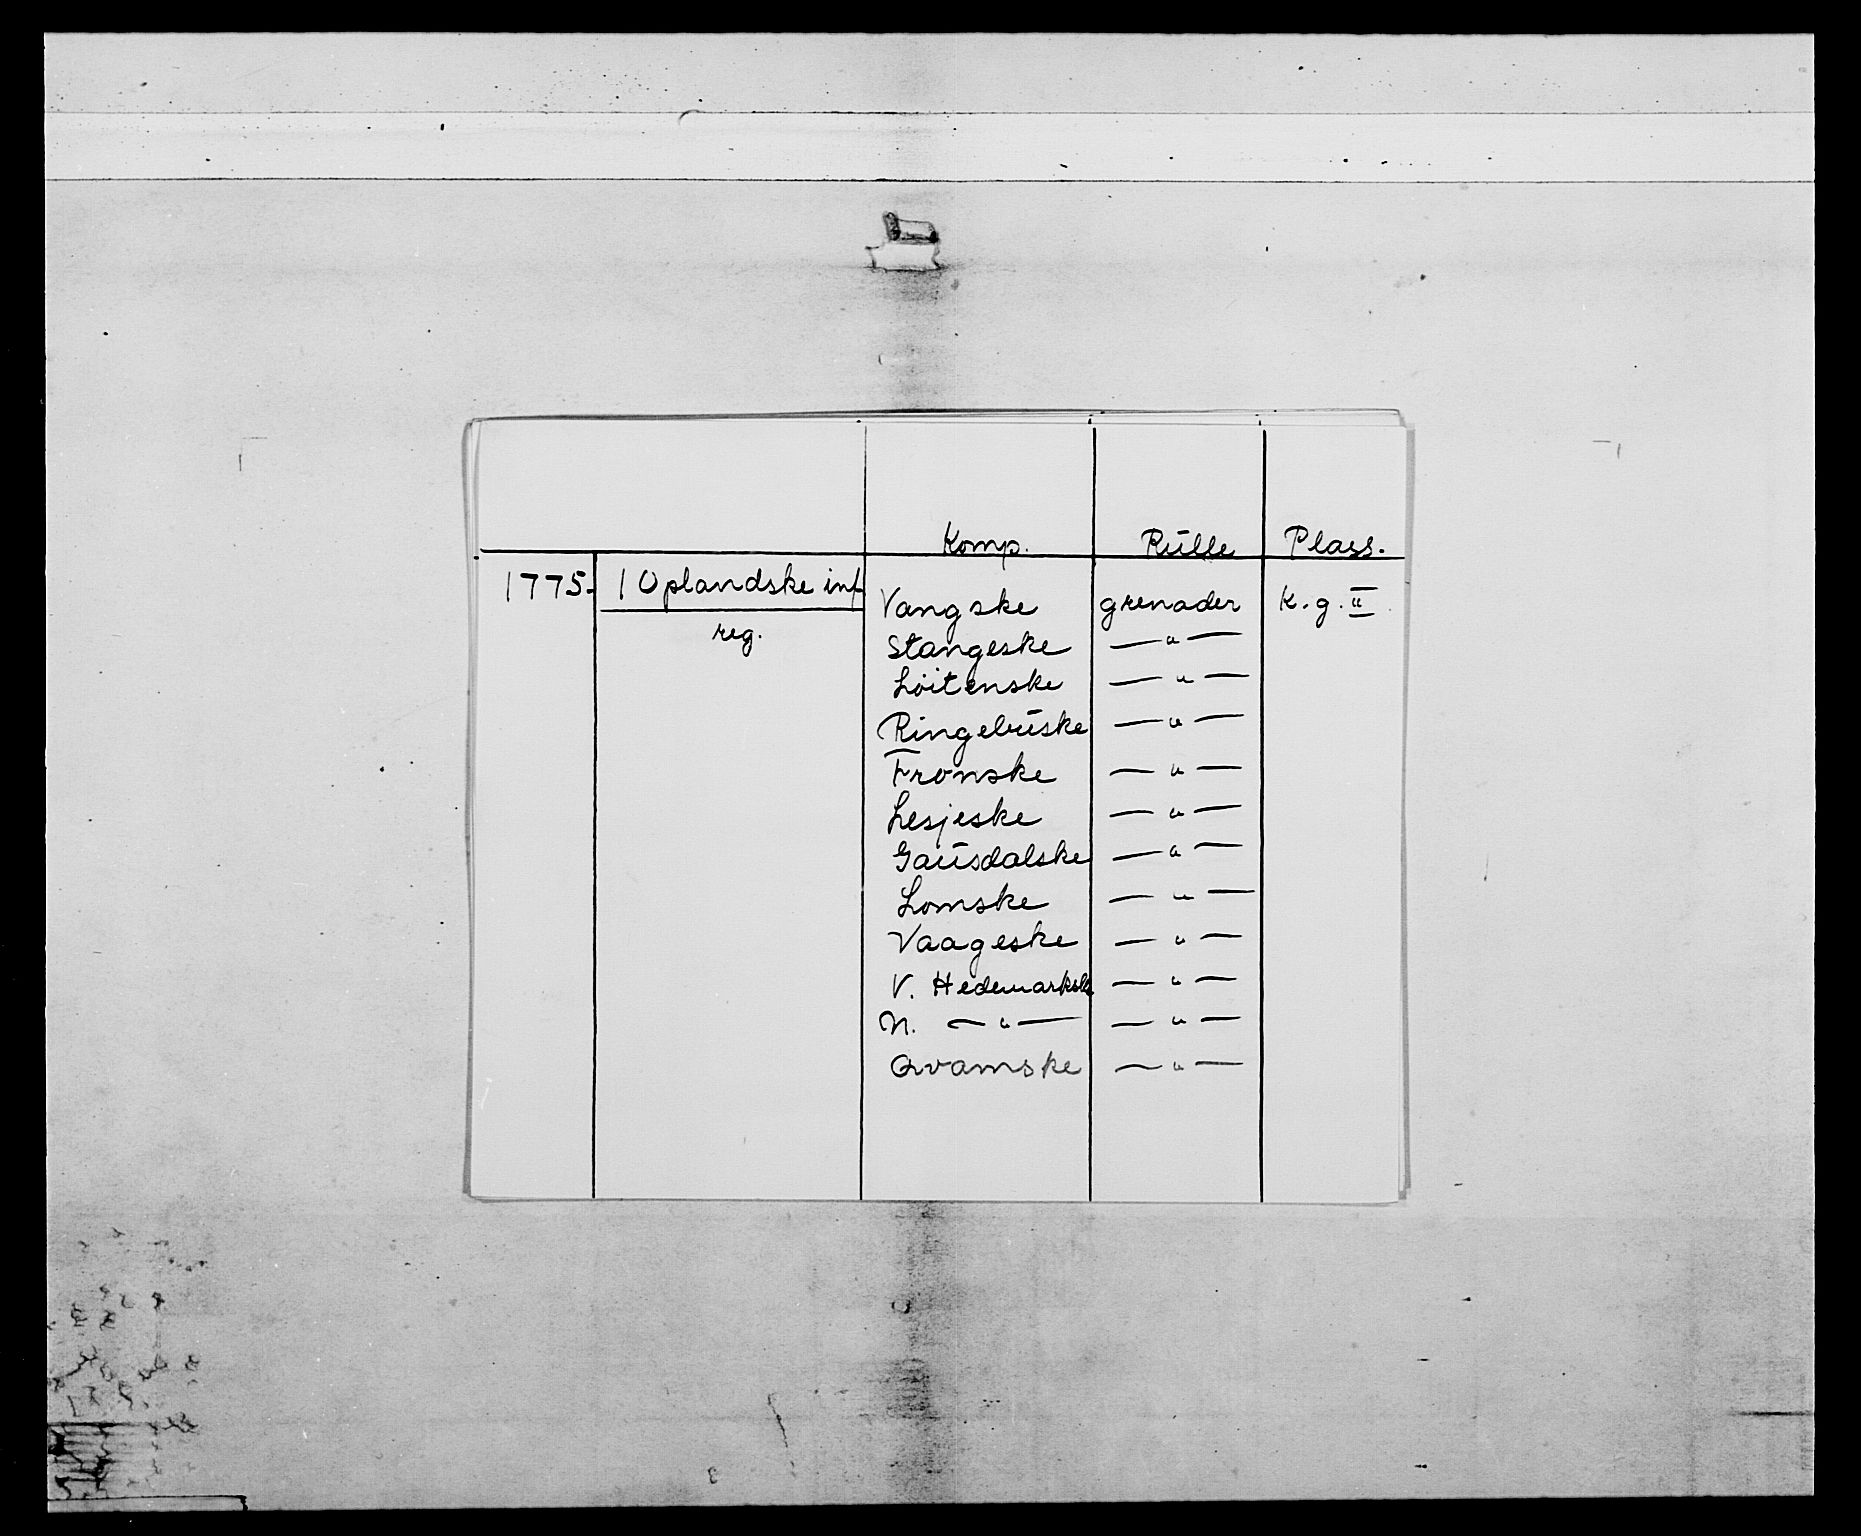 Komp. Rulle Plass.
1775. 1 Oplandske inf. Vangske grenader K. g. II
reg. Stangeske — " —
Löitenske — " —
Ringebuske — " —
Fronske — " —
Lesjeske — " —
Gausdalske — " —
Lomske — " —
Vaageske — " —
V. Hedemarkske — " —
N. — " — — " —
Qvamske — " —